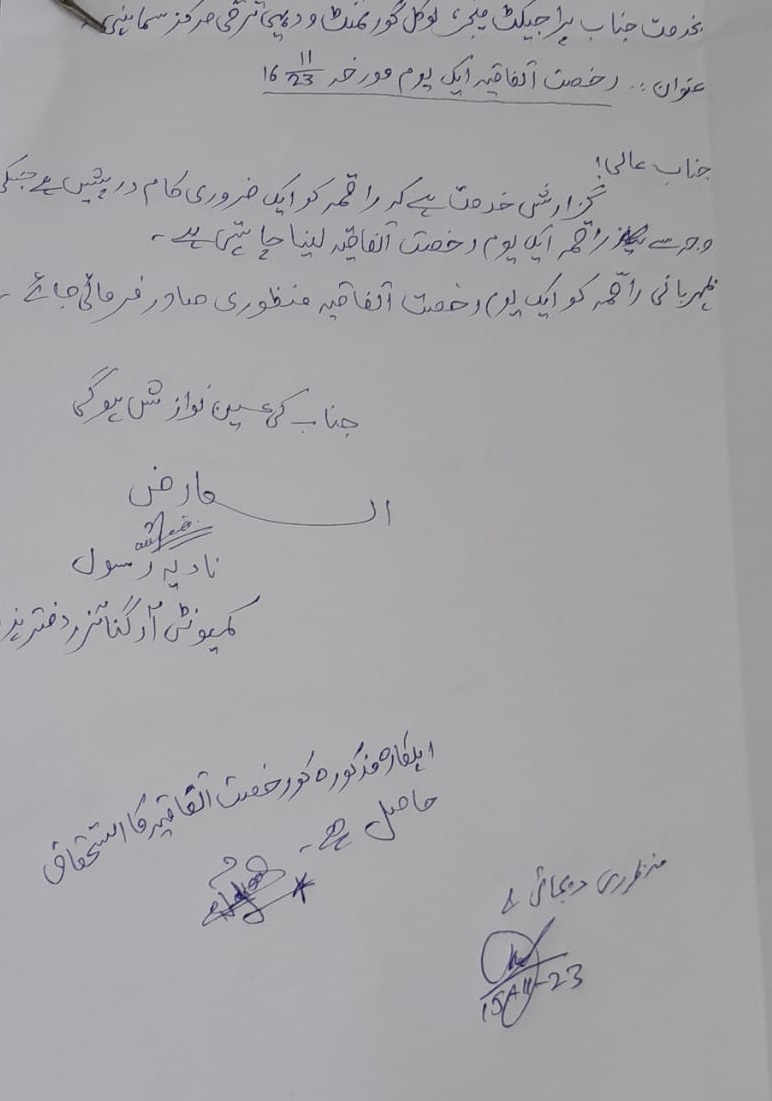 بخدمت جناب پراجیکٹ منیجر لوکل گورنمنٹ و دیہی ترقی مرکز سماہنی۔
عنوان:۔ رخصت اتفاقیہ ایک یوم مورخہ 16 11/23
جناب عالی!
گزارش خدمت ہے کہ راقمہ کو ایک ضروری کام درپیش ہے جسکی
وجہ سے راقمہ ایک یوم رخصت اتفاقیہ لینا چاہتی ہے۔
مہربانی راقمہ کو ایک یوم رخصت اتفاقیہ منظوری صادر فرمائی جائے۔
جناب کی عین نوازش ہوگی
العارض
نادیہ رسول
کمیونٹی آرگنائزر دفتر ہذا
اہلکارہ مذکورہ کو رخصت اتفاقیہ کا استحقاق
حاصل ہے۔
منظوری دیجاتی ہے
15-11-23